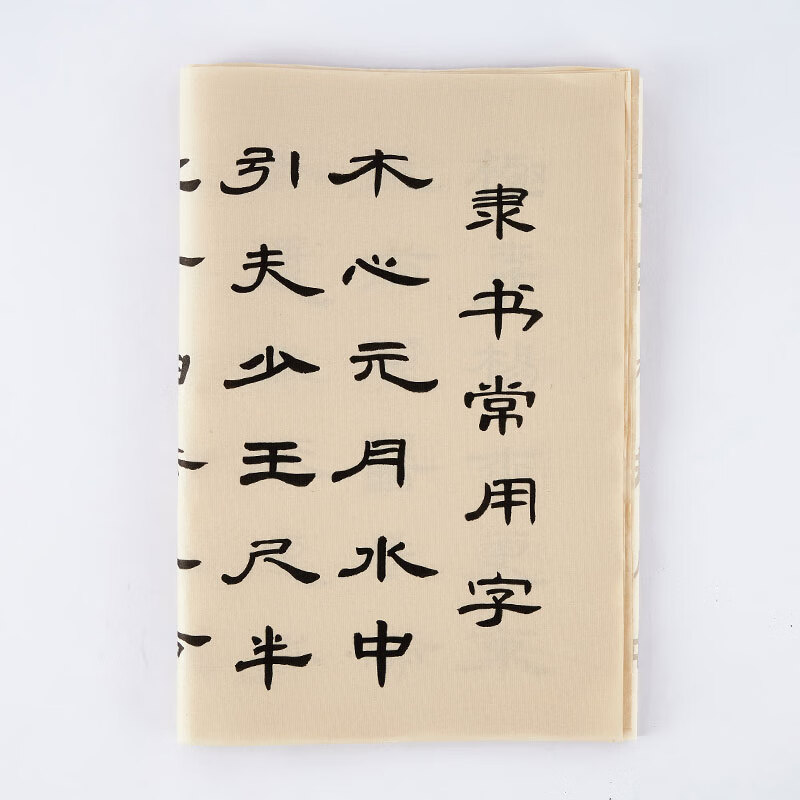 隶书常用字
木心元月水中
引夫少王尺半